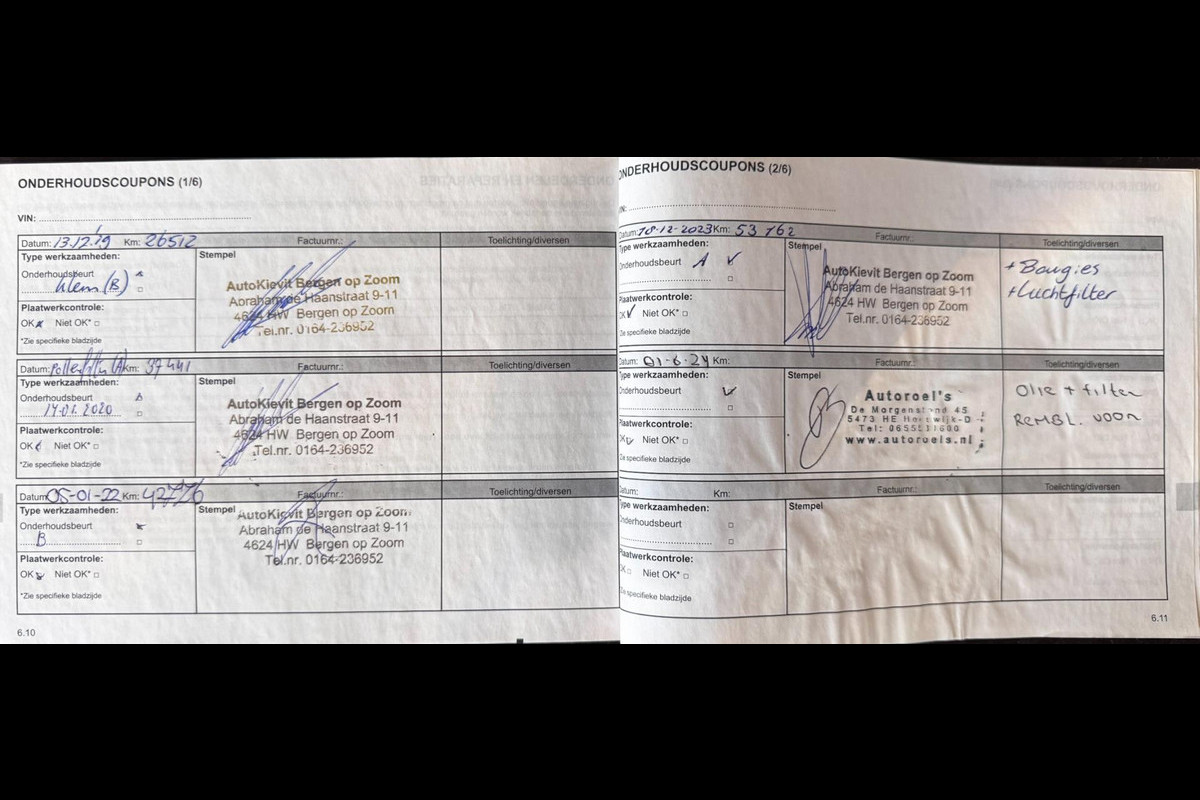 ONDERHOUDSCOUPONS (1/6)
VIN:
Datum: 13.12.19 Km: 26512 Factuurnr.: Toelichting/diversen
Type werkzaamheden: Stempel
Onderhoudsbeurt
klein (B)
Plaatwerkcontrole:
OK Niet OK*
*Zie specifieke bladzijde
AutoKievit Bergen op Zoom
Abraham de Haanstraat 9-11
4624 HW Bergen op Zoom
Tel.nr. 0164-236952
Datum: Pollenfilter (A) Km: 37441 Factuurnr.: Toelichting/diversen
Type werkzaamheden: Stempel
Onderhoudsbeurt
14-01.2020
Plaatwerkcontrole:
OK Niet OK*
*Zie specifieke bladzijde
AutoKievit Bergen op Zoom
Abraham de Haanstraat 9-11
4624 HW Bergen op Zoom
Tel.nr. 0164-236952
Datum: 05-01-22 Km: 42776 Factuurnr.: Toelichting/diversen
Type werkzaamheden: Stempel
Onderhoudsbeurt
B
Plaatwerkcontrole:
OK Niet OK*
*Zie specifieke bladzijde
AutoKievit Bergen op Zoom
Abraham de Haanstraat 9-11
4624 HW Bergen op Zoom
Tel.nr. 0164-236952
6.10
ONDERHOUDSCOUPONS (2/6)
Datum: 18-12-2023 Km: 53 762 Factuurnr.: Toelichting/diversen
Type werkzaamheden: Stempel
Onderhoudsbeurt A
Plaatwerkcontrole:
OK Niet OK*
Zie specifieke bladzijde
AutoKievit Bergen op Zoom
Abraham de Haanstraat 9-11
4624 HW Bergen op Zoom
Tel.nr. 0164-236952
+ Bougies
+ luchtfilter
Datum: 01-6-24 Km: Factuurnr.: Toelichting/diversen
Type werkzaamheden: Stempel
Onderhoudsbeurt
Plaatwerkcontrole:
Niet OK*
Zie specifieke bladzijde
Autoroel's
De Morgenstond 45
5473 HE
Tel:
www.autoroels.nl
Olie + filter
REMBL. voor
Datum: Km: Factuurnr.: Toelichting/diversen
Type werkzaamheden: Stempel
Onderhoudsbeurt
Plaatwerkcontrole:
Niet OK*
Zie specifieke bladzijde
6.11